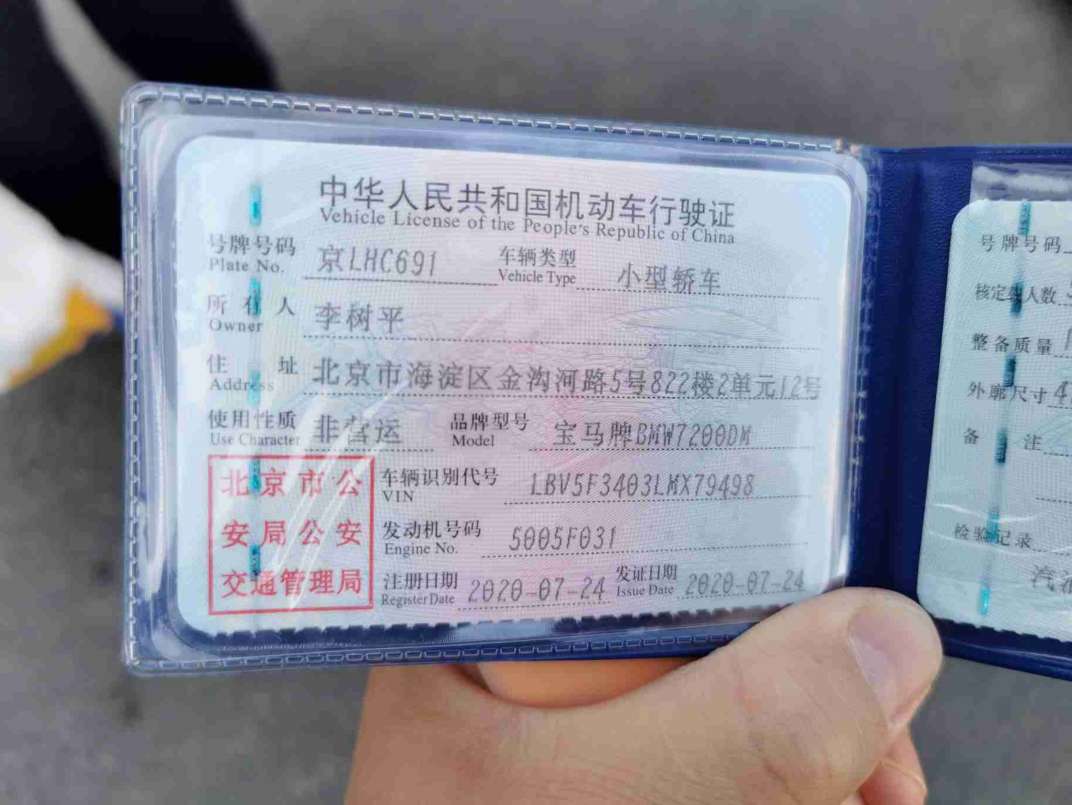 中华人民共和国机动车行驶证
Vehicle License of the People's Republic of China
号牌号码 京LHC691 车辆类型 小型轿车
Plate No. Vehicle Type
所有人 李树平
Owner
住址 北京市海淀区金沟河路5号822楼2单元12号
Address
使用性质 非营运 品牌型号 宝马牌BMW7200DM
Use Character Model
车辆识别代号 LBV5F3403LMX79498
VIN
发动机号码 5005F031
Engine No.
注册日期 2020-07-24 发证日期 2020-07-24
Register Date Issue Date
北京市公
安局公安
交通管理局
号牌号码
核定载人数
整备质量
外廓尺寸
备注
检验记录